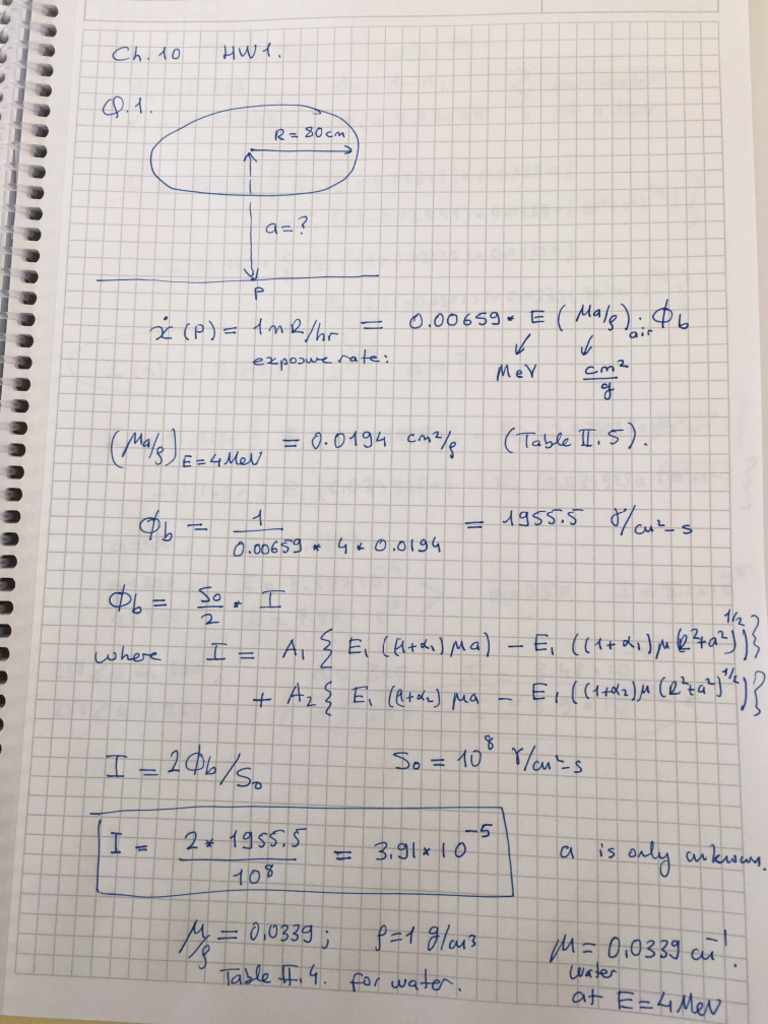 Ch. 10 HW1.
Q.1.
R = 80cm
a = ?
P
ẋ (P) = 1 mR/hr = 0.00659 * E (μa/ρ)air . ϕb
exposure rate: MeV cm²/g
(μa/ρ)E=4MeV = 0.0194 cm²/g (Table II.5).
ϕb = 1 / 0.00659 * 4 * 0.0194 = 1955.5 γ/cm²-s
ϕb = S0/2 * I
where I = A1 { E1 ((1+α1) μa) - E1 ((1+α1) μ(R²+a²)^1/2)}
+ A2 { E1 (1+α2) μa - E1 ((1+α2)μ (R²+a²)^1/2)}
I = 2ϕb/S0 S0 = 10^8 γ/cm²-s
I = 2 * 1955.5 / 10^8 = 3.91 * 10^-5 a is only unknown.
μ/ρ = 0.0339 ; ρ = 1 g/cm3 μ = 0.0339 cm^-1.
Table II.4. for water. water
at E = 4 MeV